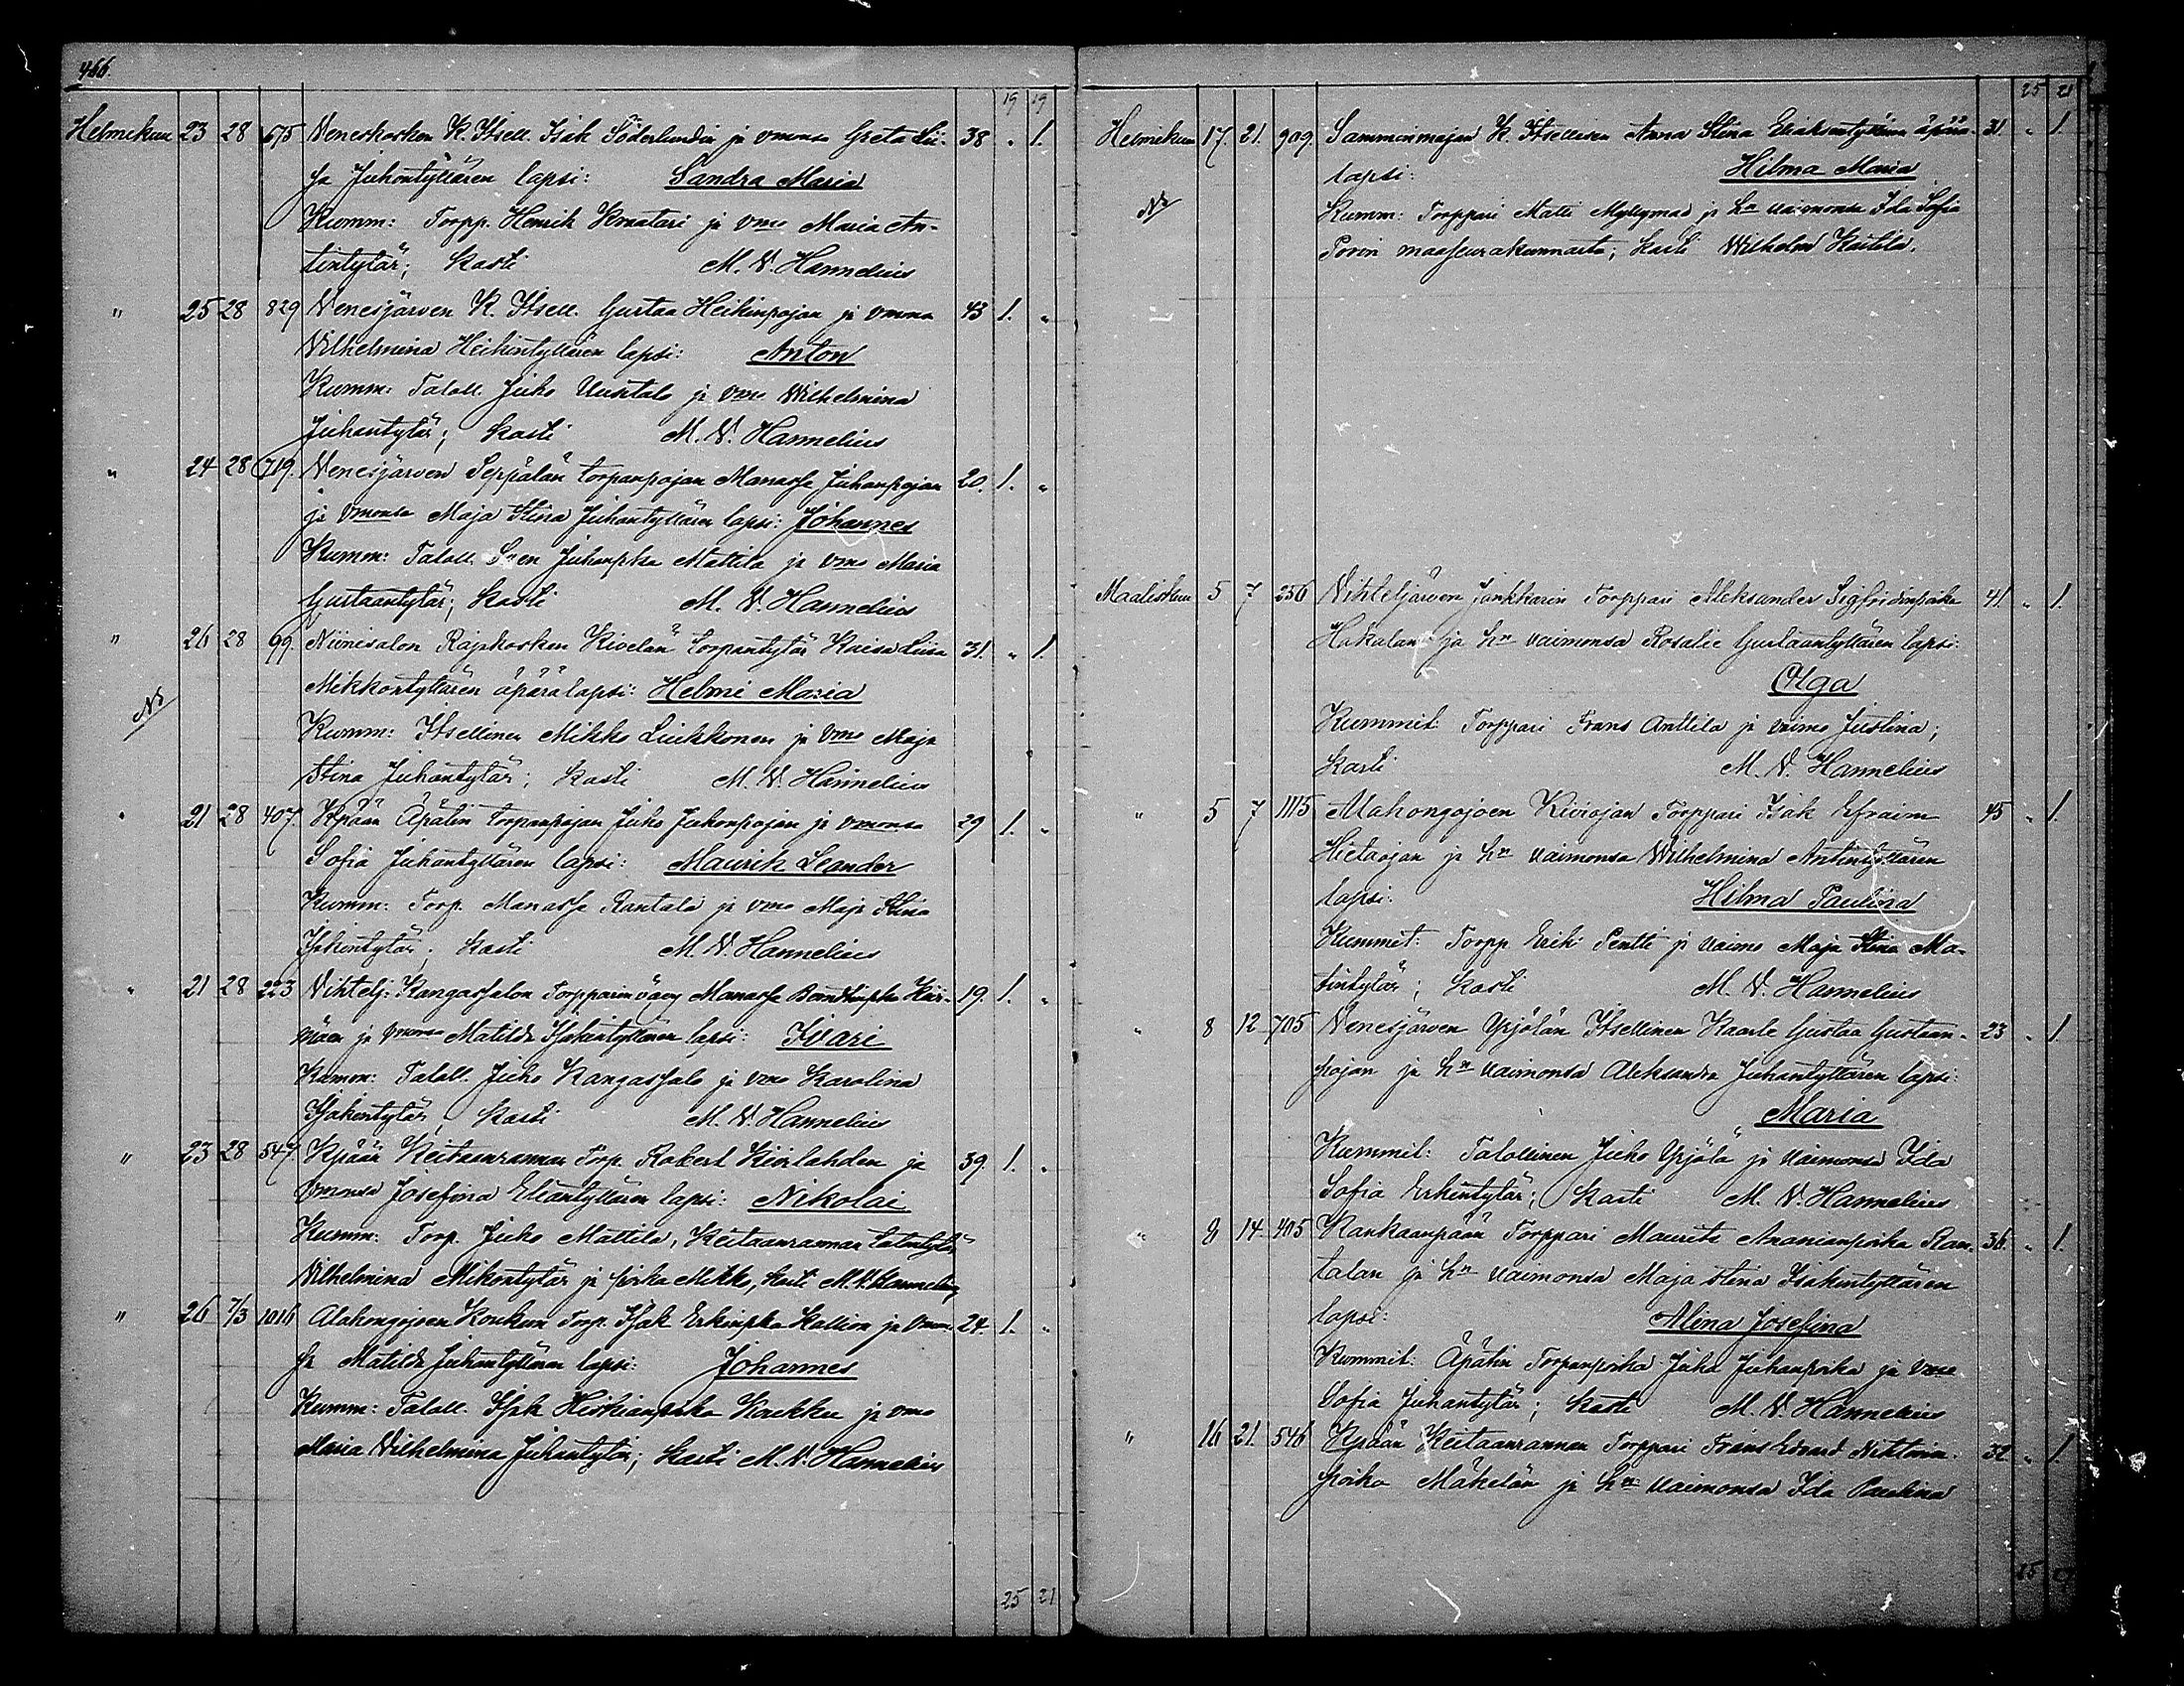 466.
19 19
Helmikuu 23 28 675 Veneskosken K. Itsell. Isak Söderlundin ja vmonsa Greta Lii- 38 " 1.
sa Juhontyttären lapsi: Sandra Maria
Kumm: Torpp. Henrik Kraatari ja vmo Maria An-
tintytär; kasti M. V. Hannelius
" 25 28 829 Venesjärven K. Itsell. Gustaa Heikinpojan ja vmonsa 43 1. "
Vilhelmina Heikintyttären lapsi: Anton
Kumm: Taloll. Juho Uusitalo ja vmo Wilhelmina
Juhantytär; kasti M. V. Hannelius
" 24 28 719. Venesjärven Seppälän torpanpojan Manasse Juhanpojan 20. 1. "
ja vmonsa Maja Stina Juhantyttären lapsi: Johannes
Kumm: Taloll. Juhanpka Mattila ja vmo Maria
Gustaantytär; kasti M. V. Hannelius
" 26 28 99. Niinisalon Rajakosken Kivelän torpantytär Kaisa Liisa 31. " 1.
Mikkontyttären äpärälapsi: Helmi Maria
Kumm: Itsellinen Mikko Liukkonen ja vmo Maja
Stina Juhantytär; kasti M. V. Hannelius
" 21 28 407. Kpään Äpätin torpanpojan Juho Juhonpojan ja vmonsa 29 1. "
Sofia Juhantyttären lapsi: Maurik Leander
Kumm: Torp. Manasse Rantala ja vmo Maja Stina
Isakintytär; kasti M. V. Hannelius
" 21 28 223 Vihtelj: Kangassalon Torpparinvävy Manasse 19. 1. "
ja vmonsa Matilda Isakintyttären lapsi: Ivari
Kumm: Taloll. Juho Kangassalo ja vmo Karolina
Isakintytär; kasti M. V. Hannelius
" 23 28 547. Kpään Keitaanrannan Torp. Robert Kivilahden ja 39. 1. "
vmonsa Josefina Eliantyttären lapsi: Nikolai
Kumm: Torp. Juho Mattila, Keitaanrannan talontytär
Vilhelmina Mikontytär ja poika Mikko, kasti M. V. Hannelius
" 26 7/3 1016 Alahongojoen Koukun Torp. Isak Erkinpka Kallion ja vmon- 24. 1. "
sa Matilda Juhantyttären lapsi: Johannes
Kumm: Taloll. Isak Hiskianpoika Koukku ja vmo
Maria Vilhelmina Juhantytär; kasti M. V. Hannelius
25 21
25 21
Helmikuu 17. 21. 909. Samminmajan K. Itsellisen Anna Stina Eliaksentyttären äpärä- 31. " 1.
lapsi: Hilma Maria
Kumm: Torppari Matti Myllymaa ja hn vaimonsa Ida Sofia
Porin maaseurakunnasta; kasti Wilhelm Keitilä.
Maaliskuu 5 7 256 Vihteljärven Jankkarin Torppari Aleksander Sigfridinpoika 41. " 1.
Hakalan ja hn vaimonsa Rosalie Gustaantyttären lapsi:
Olga
Kummit: Torppari Frans Anttila ja vaimo Justina;
kasti M. V. Hannelius
" 5 7 1115 Alahongojoen Kiviojan Torppari Isak Efraim 45 " 1.
Hietaojan ja hn vaimonsa Wilhelmina Antintyttären
lapsi: Hilma Paulina
Kummit: Torpp. Erik Pentti ja vaimo Maja Stina Ma-
tintytär; kasti M. V. Hannelius
" 8 12 705 Venesjärven Yrjölän Itsellinen Kaarle Gustaa Gustaan- 23 " 1.
pojan ja hn vaimonsa Aleksandra Juhantyttären lapsi:
Maria
Kummit: Talollinen Juho Yrjölä ja vaimonsa Ida
Sofia Erkintytär; kasti M. V. Hannelius
" 9 14. 405 Kankaanpään Torppari Maurits Ananianpoika Ran- 36. " 1.
talan ja hn vaimonsa Maja Stina Isakintyttären
lapsi: Alina Josefina
Kummit: Äpätin Torpanpoika Juha Juhanpoika ja vmo
Sofia Juhantytär; kasti M. V. Hannelius
" 16 21. 546 Kpään Keitaanrannan Torppari Frans Edvard Viktorin- 32 " 1.
poika Mäkelän ja hn vaimonsa Ida Paulina
25